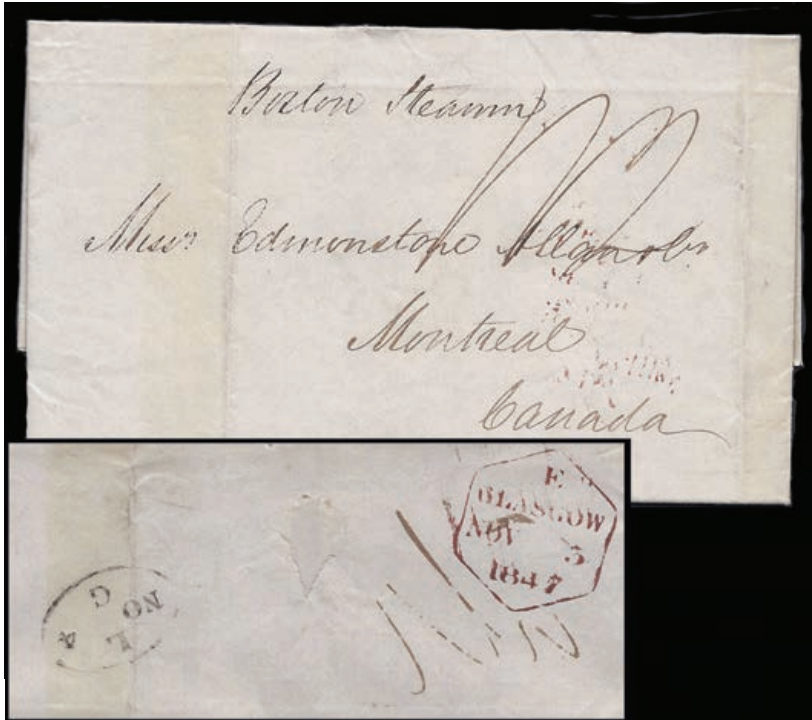 Boston Steamr
Messrs Edmonstone Allan & Co
Montreal
Canada
E
GLASGOW
NOV 3
1847
G
NO
4 L